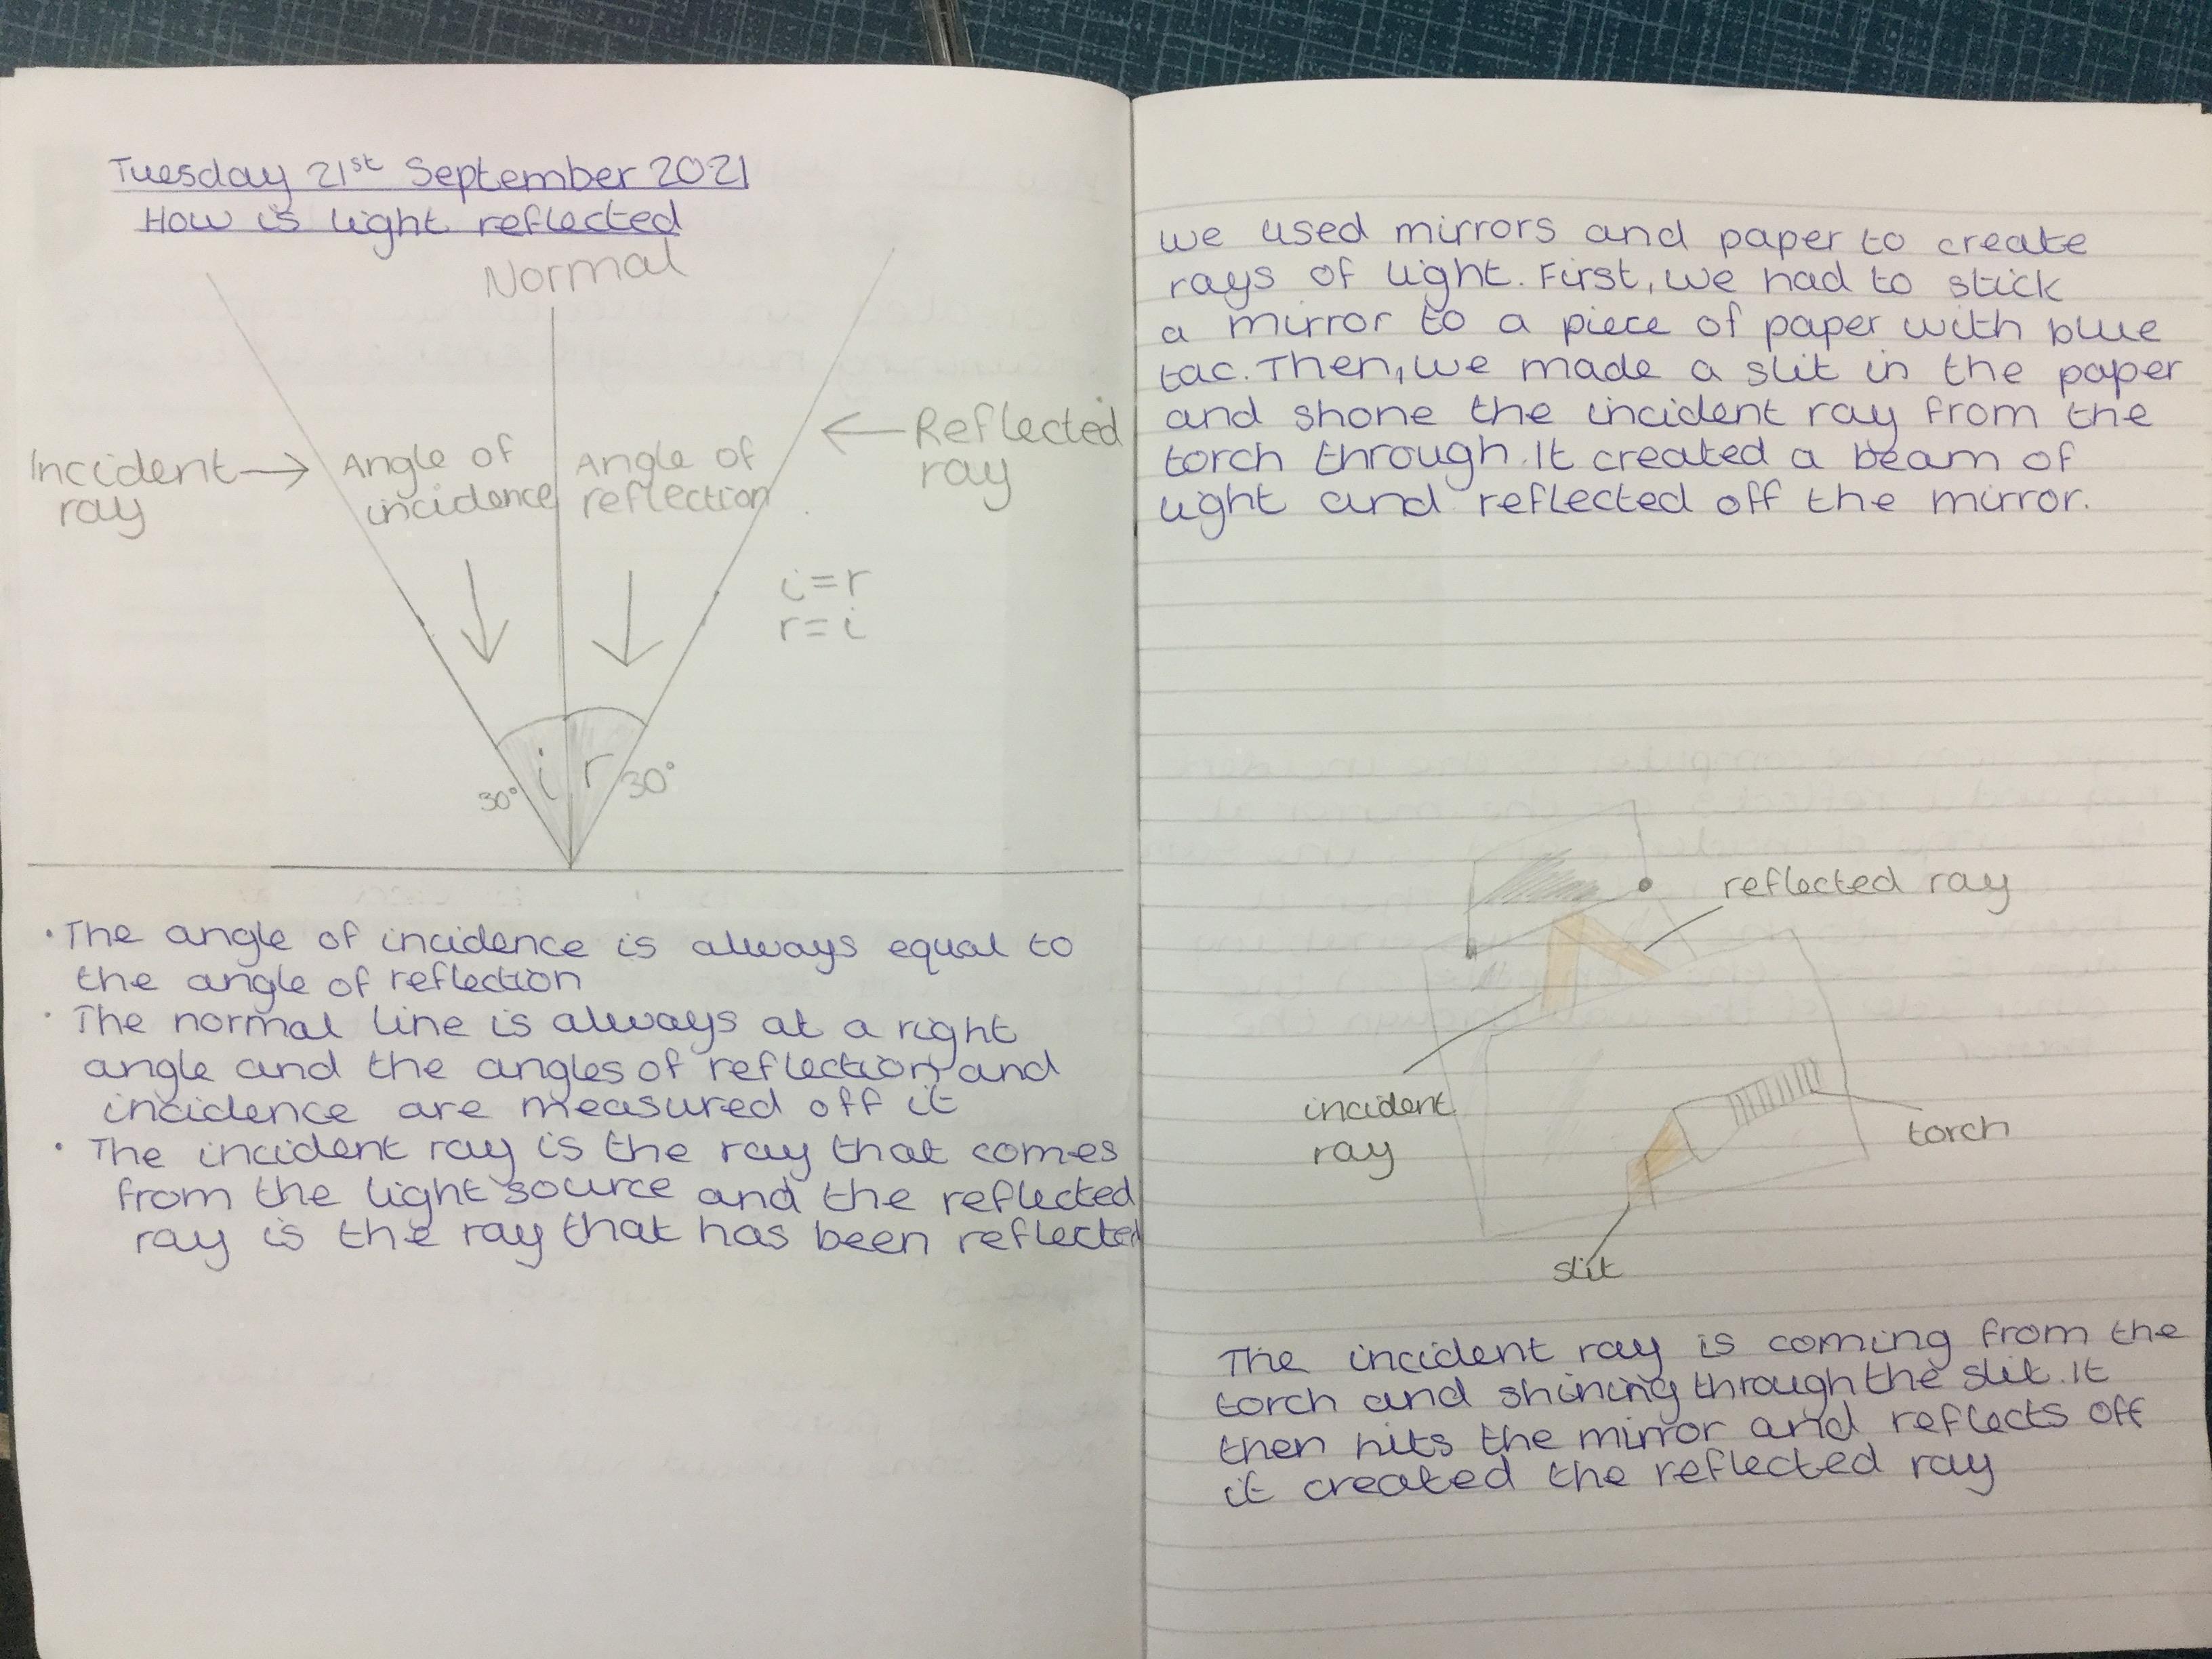 Tuesday 21st September 2021
How is light reflected
Normal
Incident
ray
Angle of
incidence
Angle of
reflection
Reflected
ray
i=r
r=i
i
r
30°
30°
• The angle of incidence is always equal to
the angle of reflection
• The normal line is always at a right
angle and the angles of reflection and
incidence are measured off it
• The incident ray is the ray that comes
from the light source and the reflected
ray is the ray that has been reflected
we used mirrors and paper to create
rays of light. First, we had to stick
a mirror to a piece of paper with blue
tac. Then, we made a slit in the paper
and shone the incident ray from the
torch through. It created a beam of
light and reflected off the mirror.
reflected ray
incident
ray
torch
slit
The incident ray is coming from the
torch and shining through the slit. It
then hits the mirror and reflects off
it created the reflected ray